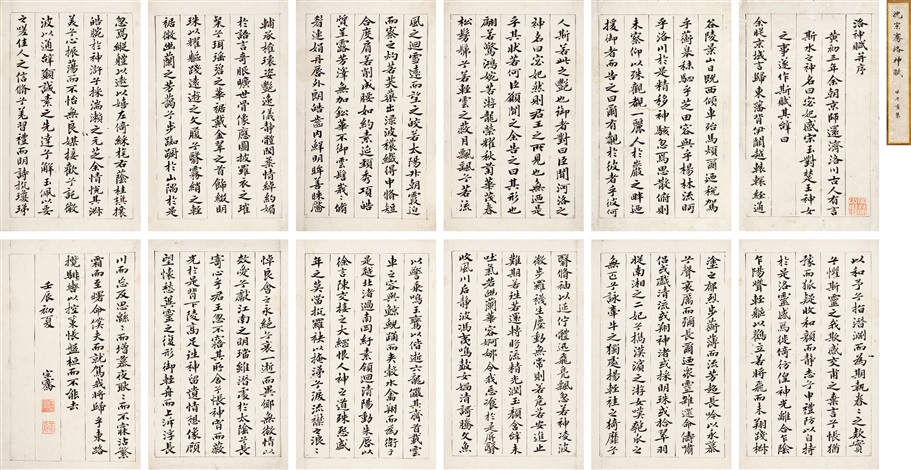 沈宗騫洛神賦
洛神賦并序
黃初三年余朝京師還濟洛川古人有言
斯水之神名曰宓妃感宋玉對楚王神女
之事遂作斯賦其辭曰
余從京域言歸東藩背伊闕越轘轅經通
谷陵景山日既西傾車殆馬煩爾迺稅駕
乎蘅皋秣駟乎芝田容與乎楊林流眄
乎洛川於是精移神駭忽焉思散俯則
未察仰以殊觀覩一麗人於巖之畔迺
援御者而告之曰爾有覿於彼者乎彼何
人斯若此之艷也御者對曰臣聞河洛之
神名曰宓妃然則君王之所見也無迺是
乎其狀若何臣願聞之余告之曰其形也
翩若驚鴻婉若游龍榮耀秋菊華茂春
松髣髴乎若輕雲之蔽月飄飄乎若流
風之迴雪遠而望之皎若太陽升朝霞迫
而察之灼若芙蕖出淥波穠纖得中脩短
合度肩若削成腰如約素延頸秀項皓
質呈露芳澤無加鉛華不御雲髻峩峩脩
眉連娟丹脣外朗皓齒內鮮明眸善睞靨
輔承權瓌姿艷逸儀靜體閑柔情綽約媚
於語言奇服曠世骨像應圖披羅衣之璀
粲兮珥瑤碧之華裾戴金翠之首飾綴明
珠以耀軀踐遠遊之文履曳霧綃之輕
裾微幽蘭之芳藹兮步踟躕於山隅於是
忽焉縱體以遨以嬉左倚綵旄右蔭桂旗攘
皓腕於神滸兮採湍瀨之玄芝余情悅其淑
美兮心振蕩而不怡無良媒以接歡兮託微
波以通辭願誠素之先達兮解玉佩以要
之嗟佳人之信脩兮羌習禮而明詩抗瓊珶
以和予兮指潛淵而為期執眷眷之款實
兮懼斯靈之我欺感交甫之棄言兮悵猶
豫而狐疑收和顏而靜志兮申禮防以自持
於是洛靈感焉徙倚彷徨神光離合乍陰
乍陽竦輕軀以鶴立若將飛而未翔踐椒
塗之郁烈步蘅薄而流芳超長吟以永慕
兮聲哀厲而彌長爾迺衆靈雜遝命儔嘯
侶或戲清流或翔神渚或採明珠或拾翠羽
從南湘之二妃兮攜漢濱之游女歎匏瓜之
無匹兮詠牽牛之獨處揚輕袿之猗靡兮
翳脩袖以延佇體迅飛鳧飄忽若神凌波
微步羅韈生塵動無常則若危若安進止
難期若往若還轉眄流精光潤玉顏含辭未
吐氣若幽蘭華容婀娜令我忘飡於是屏翳
收風川后靜波馮夷鳴鼓女媧清謌騰文魚
以警乘鳴玉鸞以偕逝六龍儼其齊首載雲
車之容與鯨鯢踊而夾轂水禽翔而為衛於
是越北沚過南岡紆素領迴清陽動朱脣以
徐言陳交接之大綱恨人神之道殊怨盛
年之莫當抗羅袂以掩涕兮淚流襟之浪浪
悼良會之永絕兮哀一逝而異鄉無微情以
效愛兮獻江南之明璫雖潛處於太陰兮長
寄心乎君王忽不悟其所舍兮悵神宵而蔽
光於是背下陵高足往神留遺情想像顧
望懷愁冀靈之復形御輕舟而上泝浮長
川而忘反思緜緜而增慕夜耿耿而不寐沾繁
霜而至曙命僕夫而就駕我將歸乎東路
攬騑轡以抗策悵盤桓而不能去
壬辰初夏
宗騫